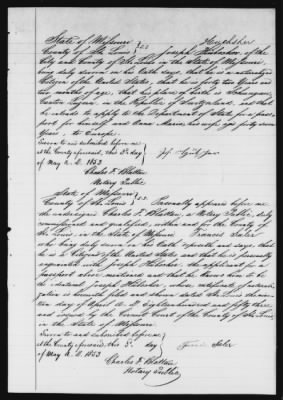 State of Missouri
County of St. Louis } S.S. Joseph of the
City and County of St. Louis in the State of Missouri,
being duly sworn on his Oath says, that he is a naturalized
Citizen of the United States, that he is forty two Years and
two months of age, that his place of birth is
Canton in the Republic of Switzerland, and that
he intends to apply to the Department of State for a pass-
port for himself and Anna Maria his wife, age forty seven
Years, to Europe.
Sworn to and subscribed before me
at the County aforesaid, this 3d day
of May A.D. 1853
Charles F. Blattau
Notary Public
State of Missouri
County of St. Louis } S.S. Personally appeared before me
the undersigned Charles F. Blattau, a Notary Public, duly
commissioned and qualified, within and for the County of
St. Louis, in the State of Missouri Francis Saler
who being duly sworn on his Oath deposeth and says, that
he is a Citizen of the United States and that he is personally
acquainted with Joseph the applicant for a
Passport above mentioned and that he knows him to be
the identical Joseph whose certificate of natural-
ization is herewith filed and shown dated St. Louis the
day of April A.D. eighteenhundred and fifty three
and issued by the Circuit Court of the County of St. Louis,
in the State of Missouri.
Sworn to and subscribed before me
at the County aforesaid, this 3d day
of May A.D. 1853
Saler
Charles F. Blattau
Notary Public